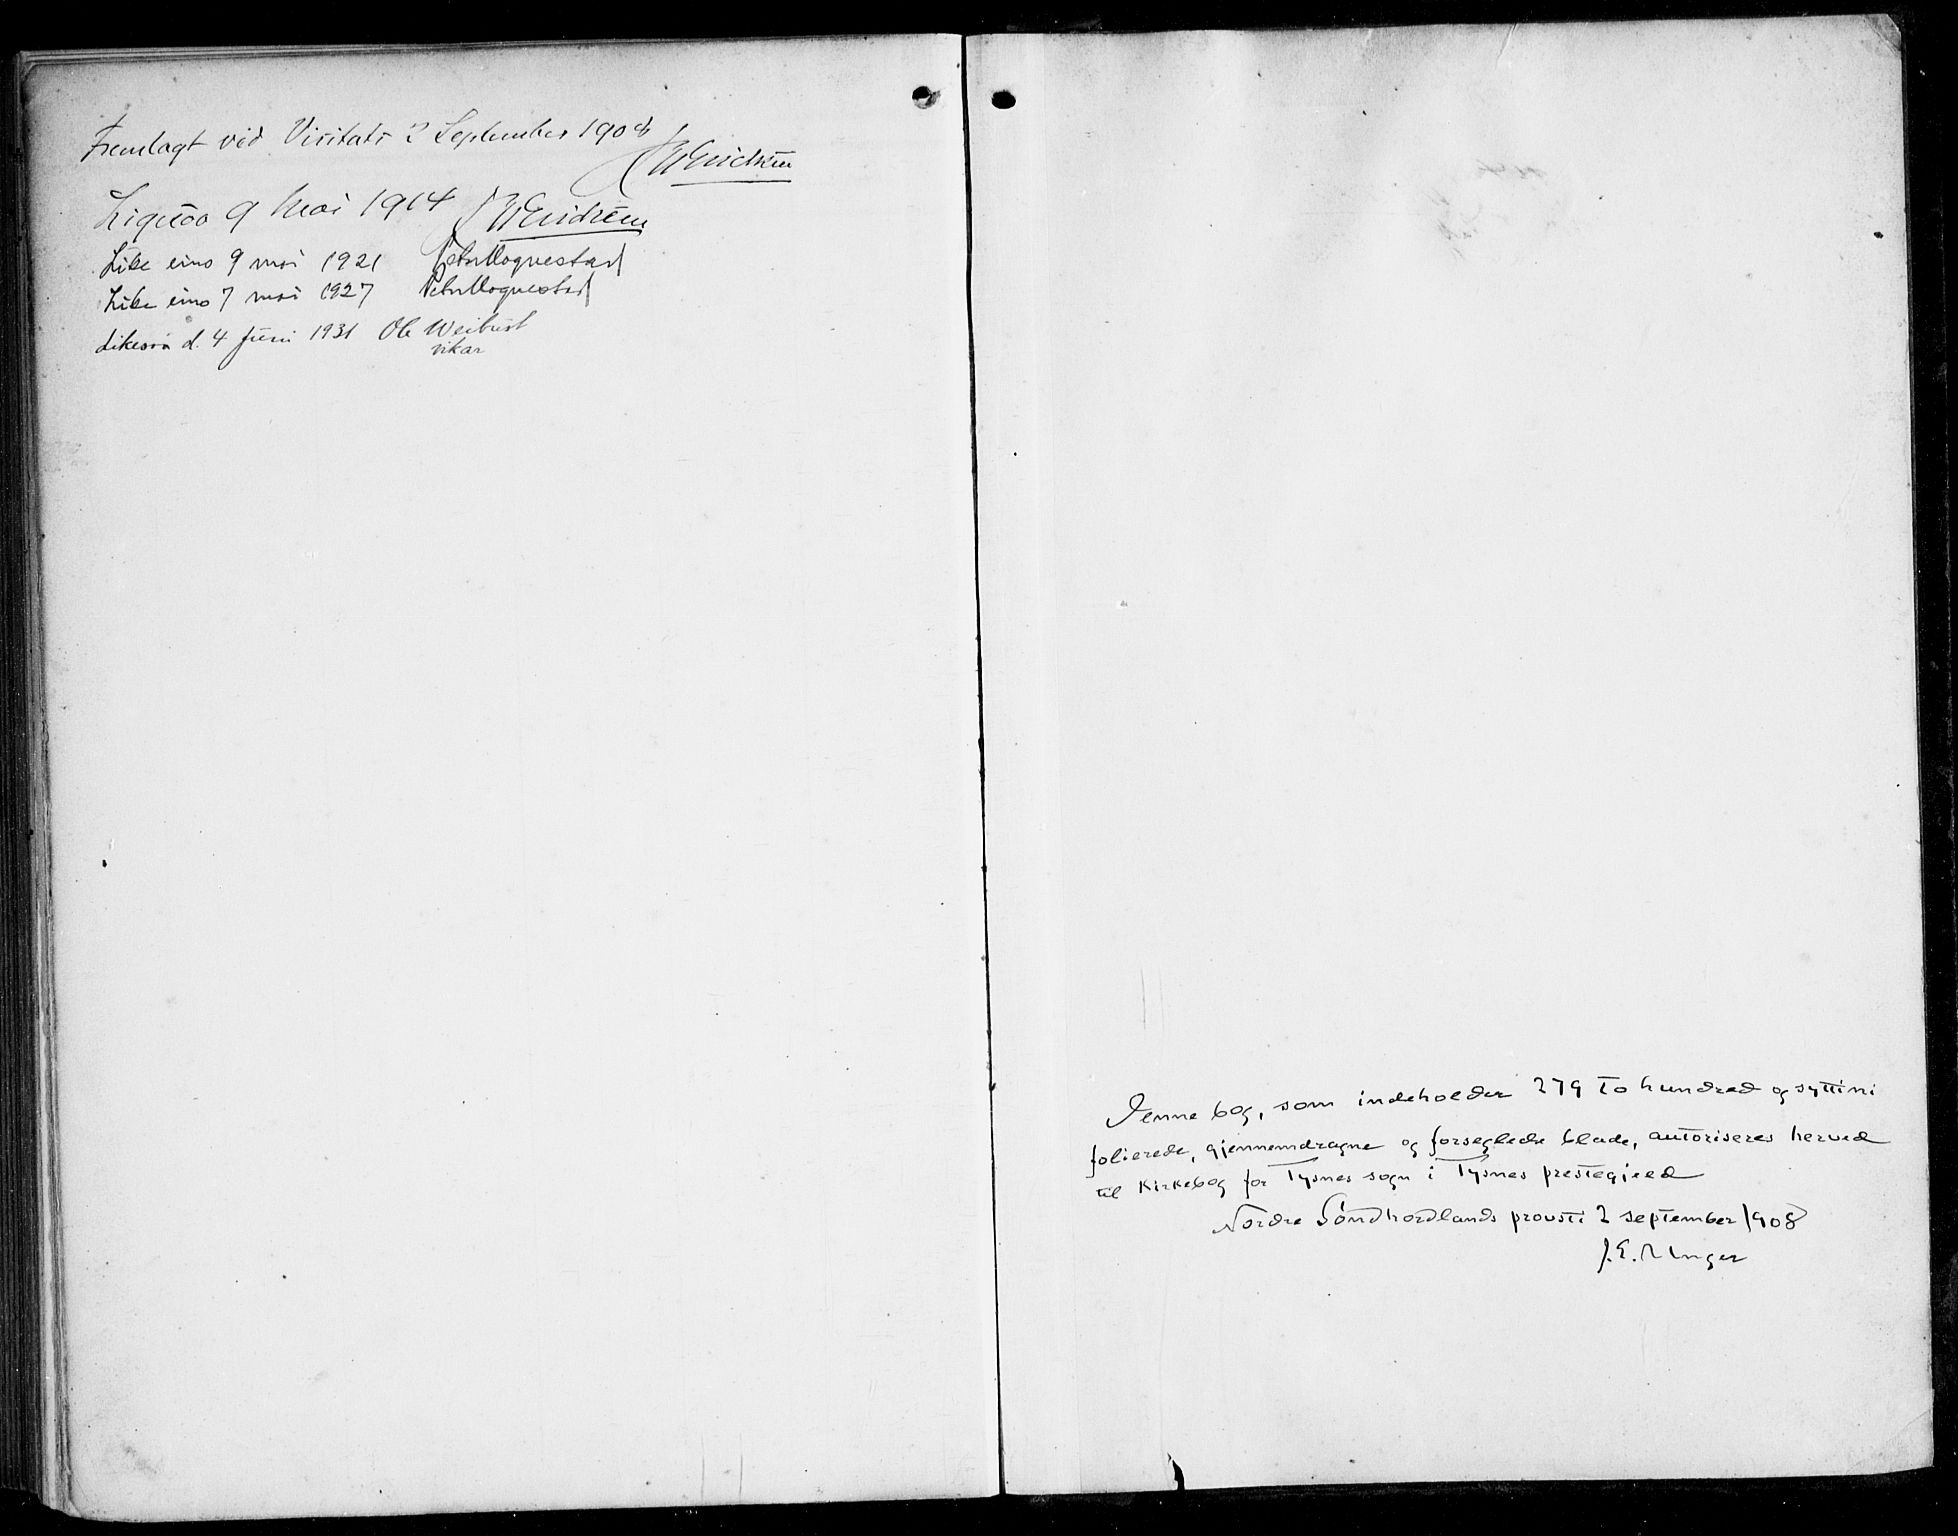 Fremlagt ved Visitats 2 September 1908
Erichsen
Ligesaa 9 Mai 1914 Erichsen
Like eins 9 mai 1921 Peter Hognestad
Like eins 7 mai 1927 Peter Hognestad
Likesaa d. 4 Juni 1931 Ole Weibust
vikar
Denne bog, som indeholder 279 to hundred og syttini
folierede, gjennemdragne og forseglede blade, autoriseres herved
til Kirkebog for Tysnes sogn i Tysnes prestegjeld
Nordre Søndhordlands provsti 2 september 1908
J. E. Unger